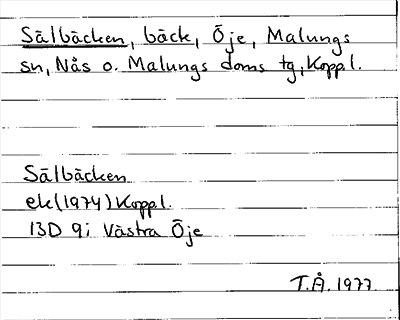 Sälbäcken, bäck, Öje, Malungs
sn, Nås o. Malungs doms tg, Koppl.
Sälbäcken
ek(1974) Koppl.
13D 9i Västra Öje
T.Å. 1977